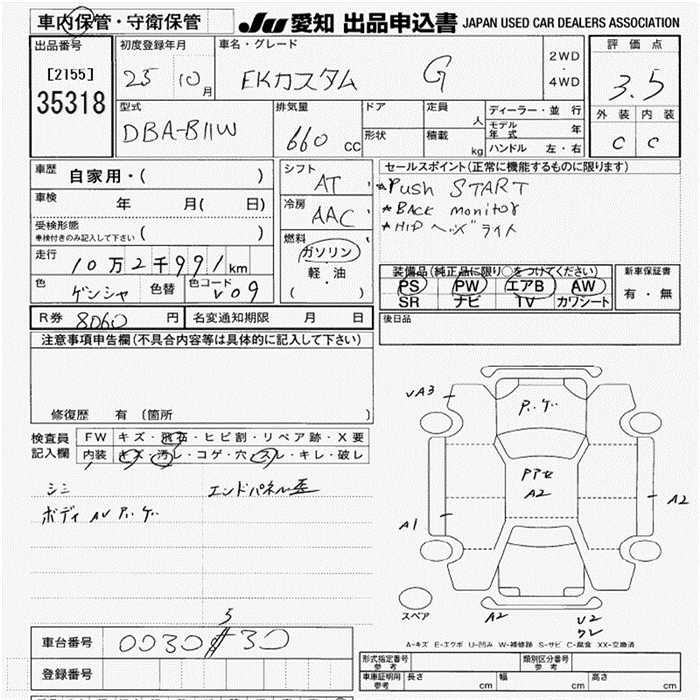 車内保管・守衛保管
JU 愛知 出品申込書 JAPAN USED CAR DEALERS ASSOCIATION
出品番号
[2155]
35318
初度登録年月
25 10月
車名・グレード
EKカスタム G
2WD
・
4WD
評価点
3.5
外装 内装
C C
型式
DBA-B11W
排気量
660 cc
ドア
形状
定員 人
積載 kg
ディーラー・並行
モデル年式 年
ハンドル 左・右
車歴 自家用・( )
車検 年 月( 日)
受検形態
車検付きのみ記入して下さい ( )
走行 10万2千991km
色 ゲンシャ 色替 色コード V09
シフト
AT
冷房
AAC
燃料
ガソリン
軽・油
( )
セールスポイント(正常に機能するものに限ります)
*Push START
*BACK monitor
*HID ヘッドライト
装備品(純正品に限り○をつけてください)
PS PW エアB AW
SR ナビ TV カワシート
新車保証書
有・無
R券 8060円 名変通知期限 月 日
後日品
注意事項申告欄(不具合内容等は具体的に記入して下さい)
修復歴 有 〔箇所 〕
検査員記入欄
FW キズ・飛石・ヒビ割・リペア跡・X要
内装 キズ・汚レ・コゲ・穴・スレ・キレ・破レ
シミ エンドパネル歪
ボディ AV P.ゲ
VA3
P.ゲ
A2
A1
A2
スペア
A2
V2
A-キズ E-エクボ U-凹み W-補修跡 S-サビ C-腐食 XX-交換済
車台番号 0030 5 30
登録番号
形式指定番号 参考
類別区分番号 参考
車庫証明用 参考 長さ cm 幅 cm 高さ cm